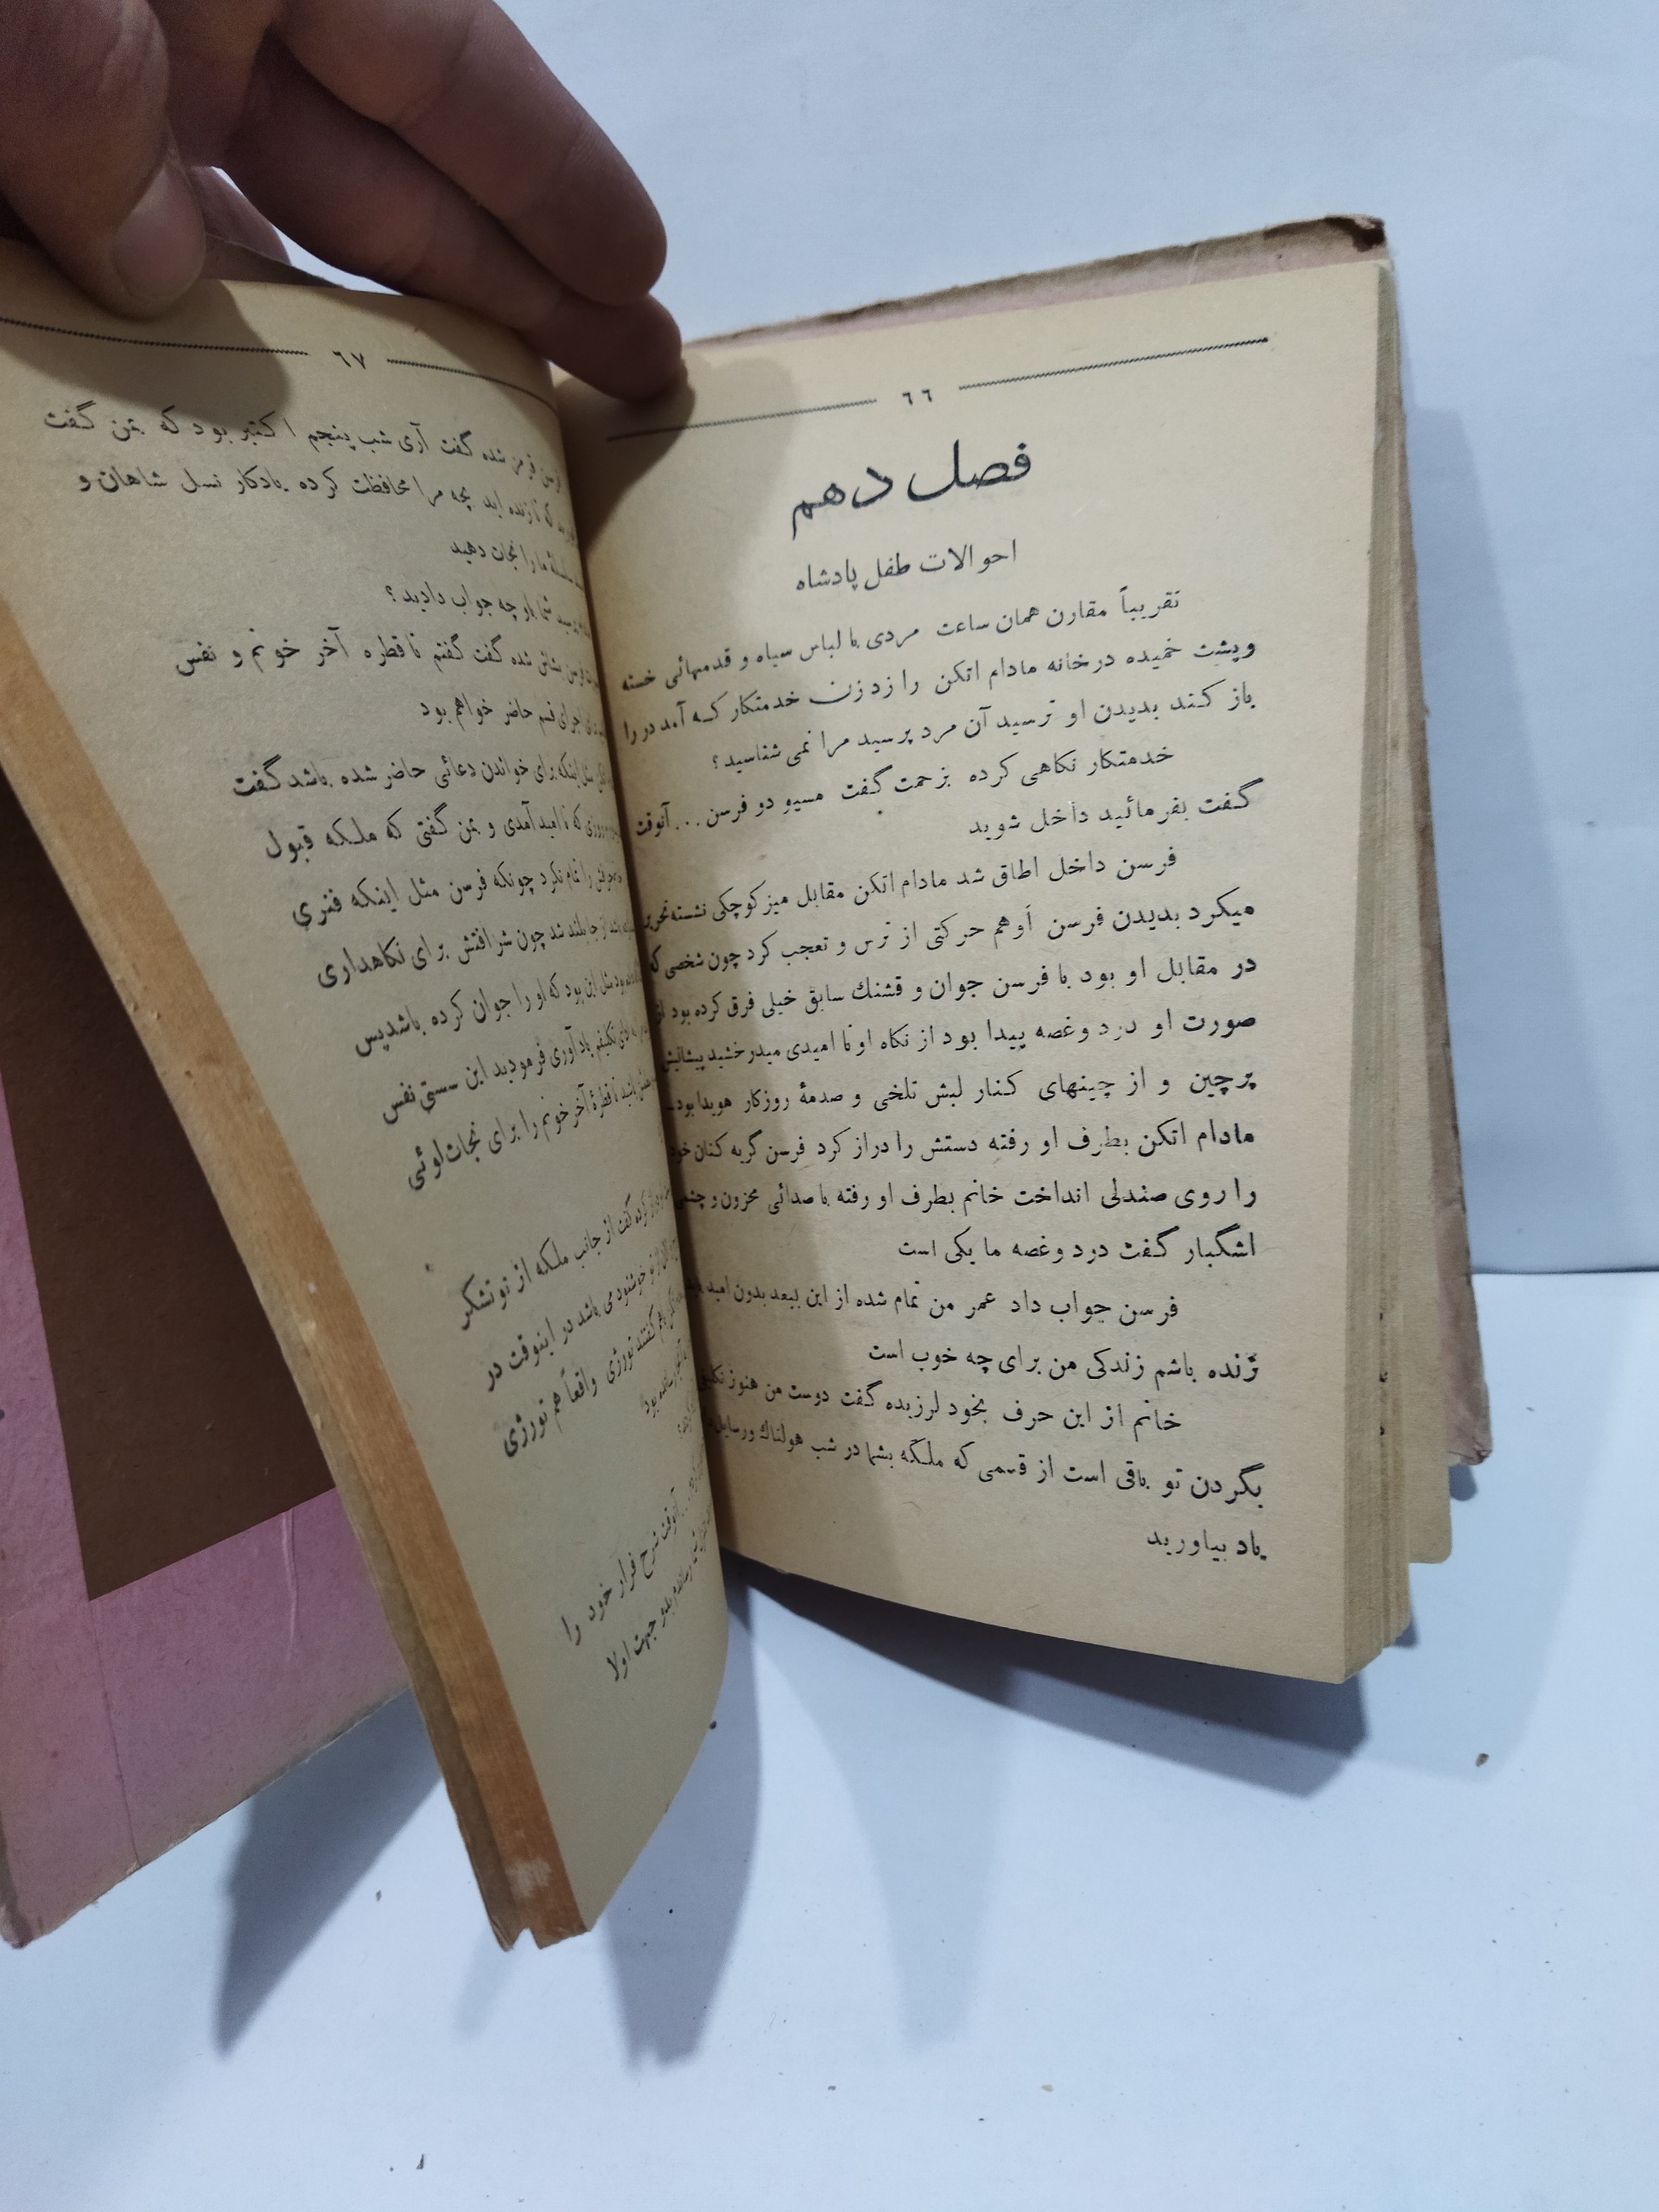 ٦٦
فصل دهم
احوالات طفل پادشاه
تقریباً مقارن همان ساعت مردی با لباس سیاه و قدمهائی خسته
وپشت خمیده درخانه مادام اتکن را زد زن خدمتکار که آمد در را
باز کند بدیدن او ترسید آن مرد پرسید مرا نمی شناسید؟
خدمتکار نگاهی کرده بزحمت گفت مسیو دو فرسن... آنوقت
گفت بفرمائید داخل شوید
فرسن داخل اطاق شد مادام اتکن مقابل میز کوچکی نشسته تحریر
میکرد بدیدن فرسن اوهم حرکتی از ترس و تعجب کرد چون شخصی که
در مقابل او بود با فرسن جوان و قشنك سابق خیلی فرق کرده بود از
صورت او درد وغصه پیدا بود از نگاه او نا امیدی میدرخشید پیشانیش
پرچین و از چینهای کنار لبش تلخی و صدمهٔ روزکار هویدا بود
مادام اتکن بطرف او رفته دستش را دراز کرد فرسن گریه کنان خود
را روی صندلی انداخت خانم بطرف او رفته با صدائی محزون و چشمی
اشگبار گفت درد وغصه ما یکی است
فرسن جواب داد عمر من تمام شده از این ببعد بدون امید
زنده باشم زندکی من برای چه خوب است
خانم از این حرف بخود لرزیده گفت دوست من هنوز
بگردن تو باقی است از قسمی که ملکه بشما در شب هولناك ورسایل
یاد بیاورید
٦٧
شده گفت آری شب پنجم اکتبر بود که بمن گفت
تا زنده اید بچه مرا محافظت کرده یادکار نسل شاهان و
ما را نجات دهید
شما باو چه جواب دادید؟
شده گفت گفتم تا قطره آخر خونم و نفس
اجرای قسم حاضر خواهم بود
مثل اینکه برای خواندن دعائی حاضر شده باشد گفت
که نا امید آمدی و بمن گفتی که ملکه قبول
را تمام نکرد چونکه فرسن مثل اینکه فنری
از جا بلند شد چون شرافتش برای نکاهداری
مثل این بود که او را جوان کرده باشد پس
یاد آوری فرمودید این سستی نفس
تا قطرهٔ آخر خونم را برای نجات لوئی
کرده گفت از جانب ملکه از تو تشکر
خوشنود می باشد در اینوقت در
گفتند تورژی واقعاً هم تورژی
بود
آنوقت شرح فرار خود را
جهت اولا